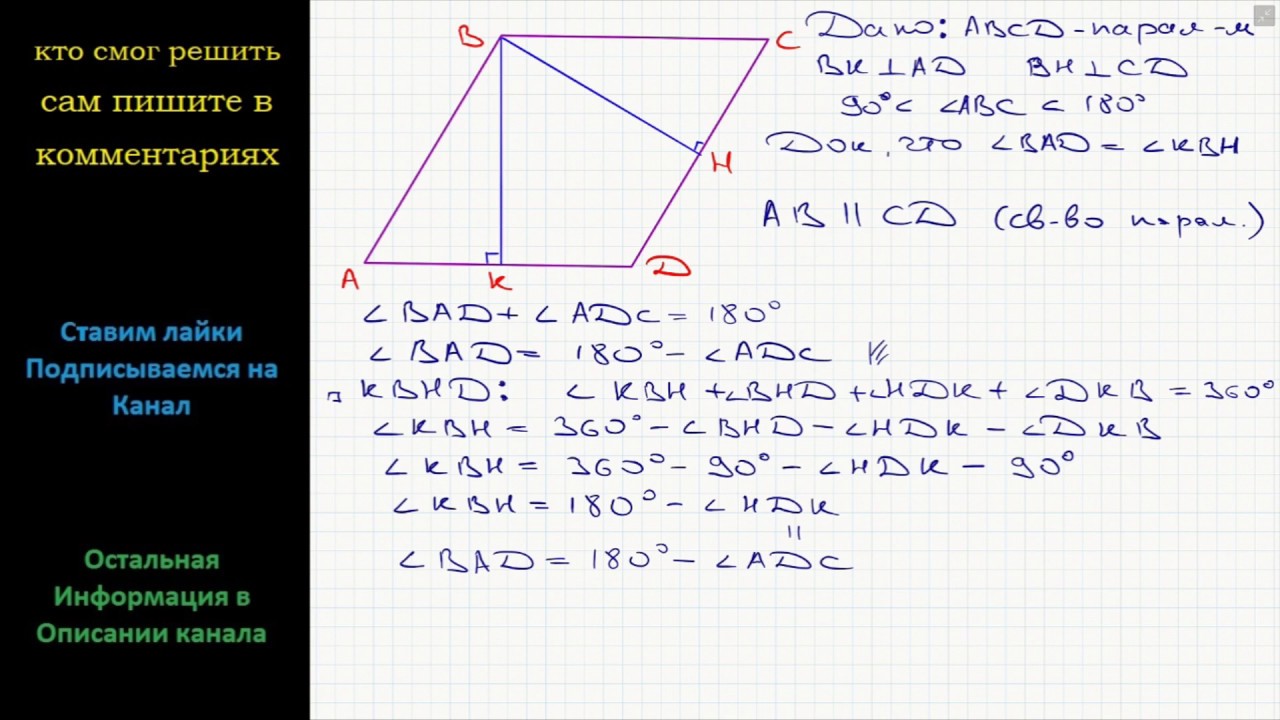 кто смог решить
сам пишите в
комментариях
Ставим лайки
Подписываемся на
Канал
Остальная
Информация в
Описании канала
B
C
H
A
K
D
Дано: ABCD-парал-м
BK⊥AD BH⊥CD
90°< ∠ABC < 180°
Док, что ∠BAD = ∠KBH
AB || CD (св-во парал.)
∠BAD + ∠ADC = 180°
∠BAD = 180° - ∠ADC
KBHD: ∠KBH + ∠BHD + ∠HDK + ∠DKB = 360°
∠KBH = 360° - ∠BHD - ∠HDK - ∠DKB
∠KBH = 360° - 90° - ∠HDK - 90°
∠KBH = 180° - ∠HDK
||
∠BAD = 180° - ∠ADC